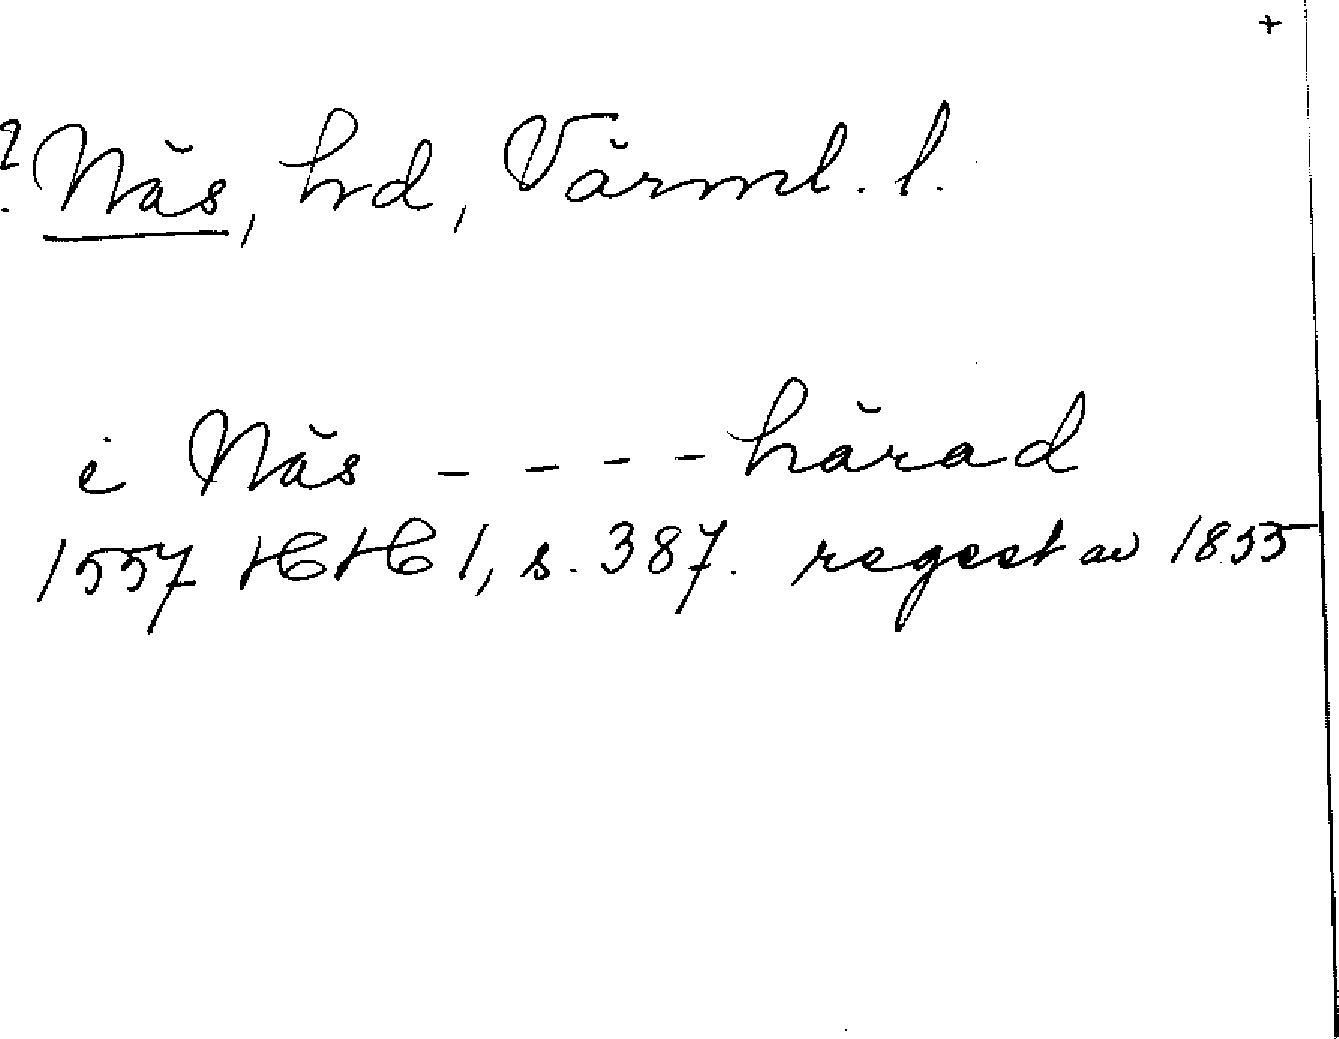 +
? Näs, hd, Värml. l.
i Näs - - - - härad
1557 HH 1, s. 387. regest av 1855